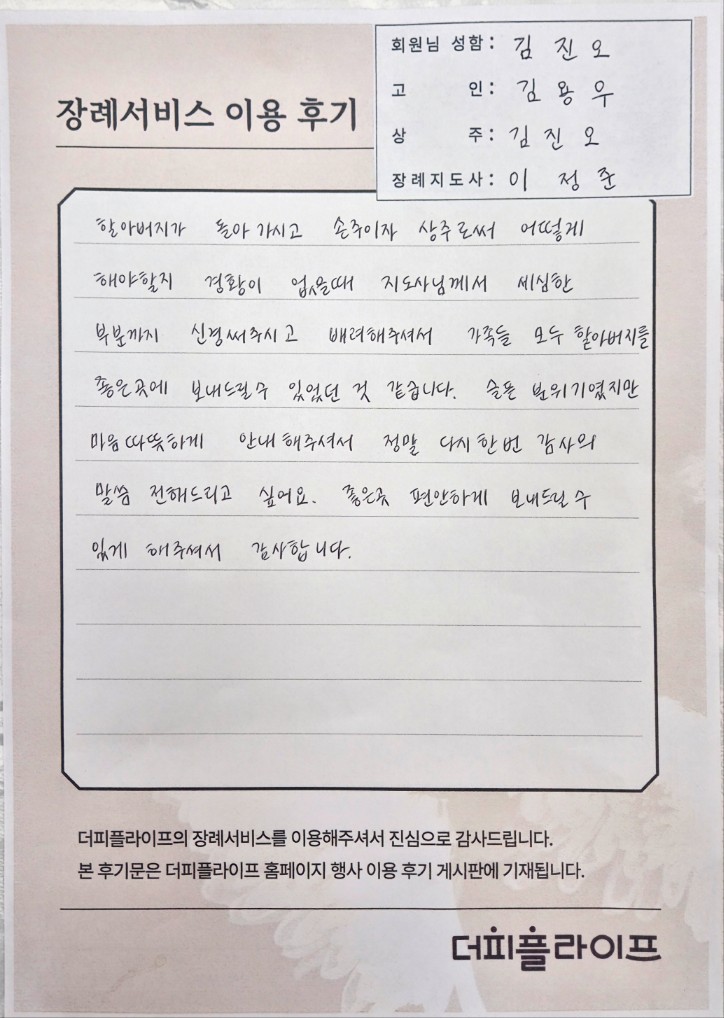 회원님 성함: 김진오
고 인: 김용우
상 주: 김진오
장례지도사: 이 정준
장례서비스 이용 후기
할아버지가 돌아가시고 손주이자 상주로써 어떻게
해야할지 경황이 없을때 지도사님께서 세심한
부분까지 신경써주시고 배려해주셔서 가족들 모두 할아버지를
좋은곳에 보내드릴수 있었던 것 같습니다. 슬픈 분위기였지만
마음 따뜻하게 안내해주셔서 정말 다시한번 감사의
말씀 전해드리고 싶어요. 좋은곳 편안하게 보내드릴 수
있게 해주셔서 감사합니다.
더피플라이프의 장례서비스를 이용해주셔서 진심으로 감사드립니다.
본 후기문은 더피플라이프 홈페이지 행사 이용 후기 게시판에 기재됩니다.
더피플라이프